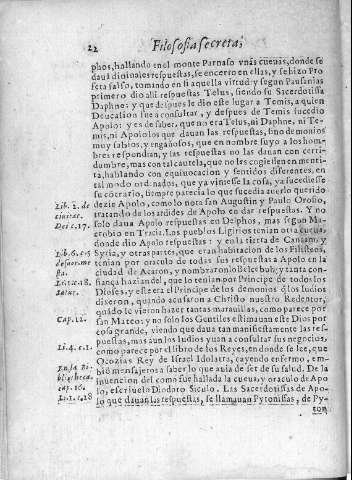 22 Filosofia secreta,
phos, hallando en el monte Parnaso vnas cueuas, donde se
daua diuinales respuestas, se encerro en ellas, y se hizo Pro
feta falso, tomando en si aquella virtud: y segun Pausanias
primero dio alli respuestas Telus, siendo su Sacerdotissa
Daphne: y que despues le dio este lugar a Temis, a quien
Deucalion fue a consultar, y despues de Temis sucedio
Apolo: y es de saber, que no era Telus, ni Daphne, ni Te-
mis, ni Apolo los que dauan las respuestas, sino demonios
muy sabios, y engañosos, que en nombre suyo a los hom-
bres respondian, y las respuestas no las dauan con certi-
dumbre, mas con tal cautela, que no les cogiessen en menti-
ra, hablando con equiuocacion y sentidos diferentes, en
tal modo ordenados, que ya viniesse la cosa, ya sucediesse
su cōtrario, siempre parecia que sucedia auerlo querido
dezir Apolo, como lo nota san Augustin y Paulo Orosio,
tratando de los ardides de Apolo en dar respuestas. Y no
solo daua Apolo respuestas en Delphos, mas segun Ma-
crobio en Traxi. Los pueblos Ligirios tenian otra cueua,
donde dio Apolo respuestas: y en la tierra de Canaam, y
Syria, y otras partes, que era habitacion de los Filisteos,
tenian por oraculo de todas sus respuestas a Apolo en la
ciudad de Acaron, y nombraronlo Belcebub, y tanta con-
fiança hazian del, que lo tenian por Principe de todos los
Dioses, y este era el Principe de los demonios q̄ los Iudios
dixeron, quando acusaron a Christo nuestro Redentor,
quādo le vieron hazer tantas marauillas, como parece por
san Mateo: y no solo los Gentiles estimauan este Dios por
cosa grande, viendo que daua tan manifiestamente las res-
puestas, mas aun los Iudios yuan a consultar sus negocios,
como parece por el libro de los Reyes, en donde se lee, que
Ocozias Rey de Israel Idolatra, cayendo enfermo, em-
bió mensajeros a saber lo que auia de ser de su salud. De la
inuencion del como fue hallada la cueua, y oraculo de Apo
lo, escriuelo Diodoro Siculo. Las Sacerdotissas de Apo
lo que dauan las respuestas, se llamauan Pytonissas, de Py-
ton
Lib. 2. de
ciuitat.
Dei c. 17.
Lib. 6. c. 5
Li. 1. c. 18.
Satur.
Cap. 12.
Li. 4. c. 1.
En la Bi-
bliotheca
cap. 16.
Li. 1. c. 18